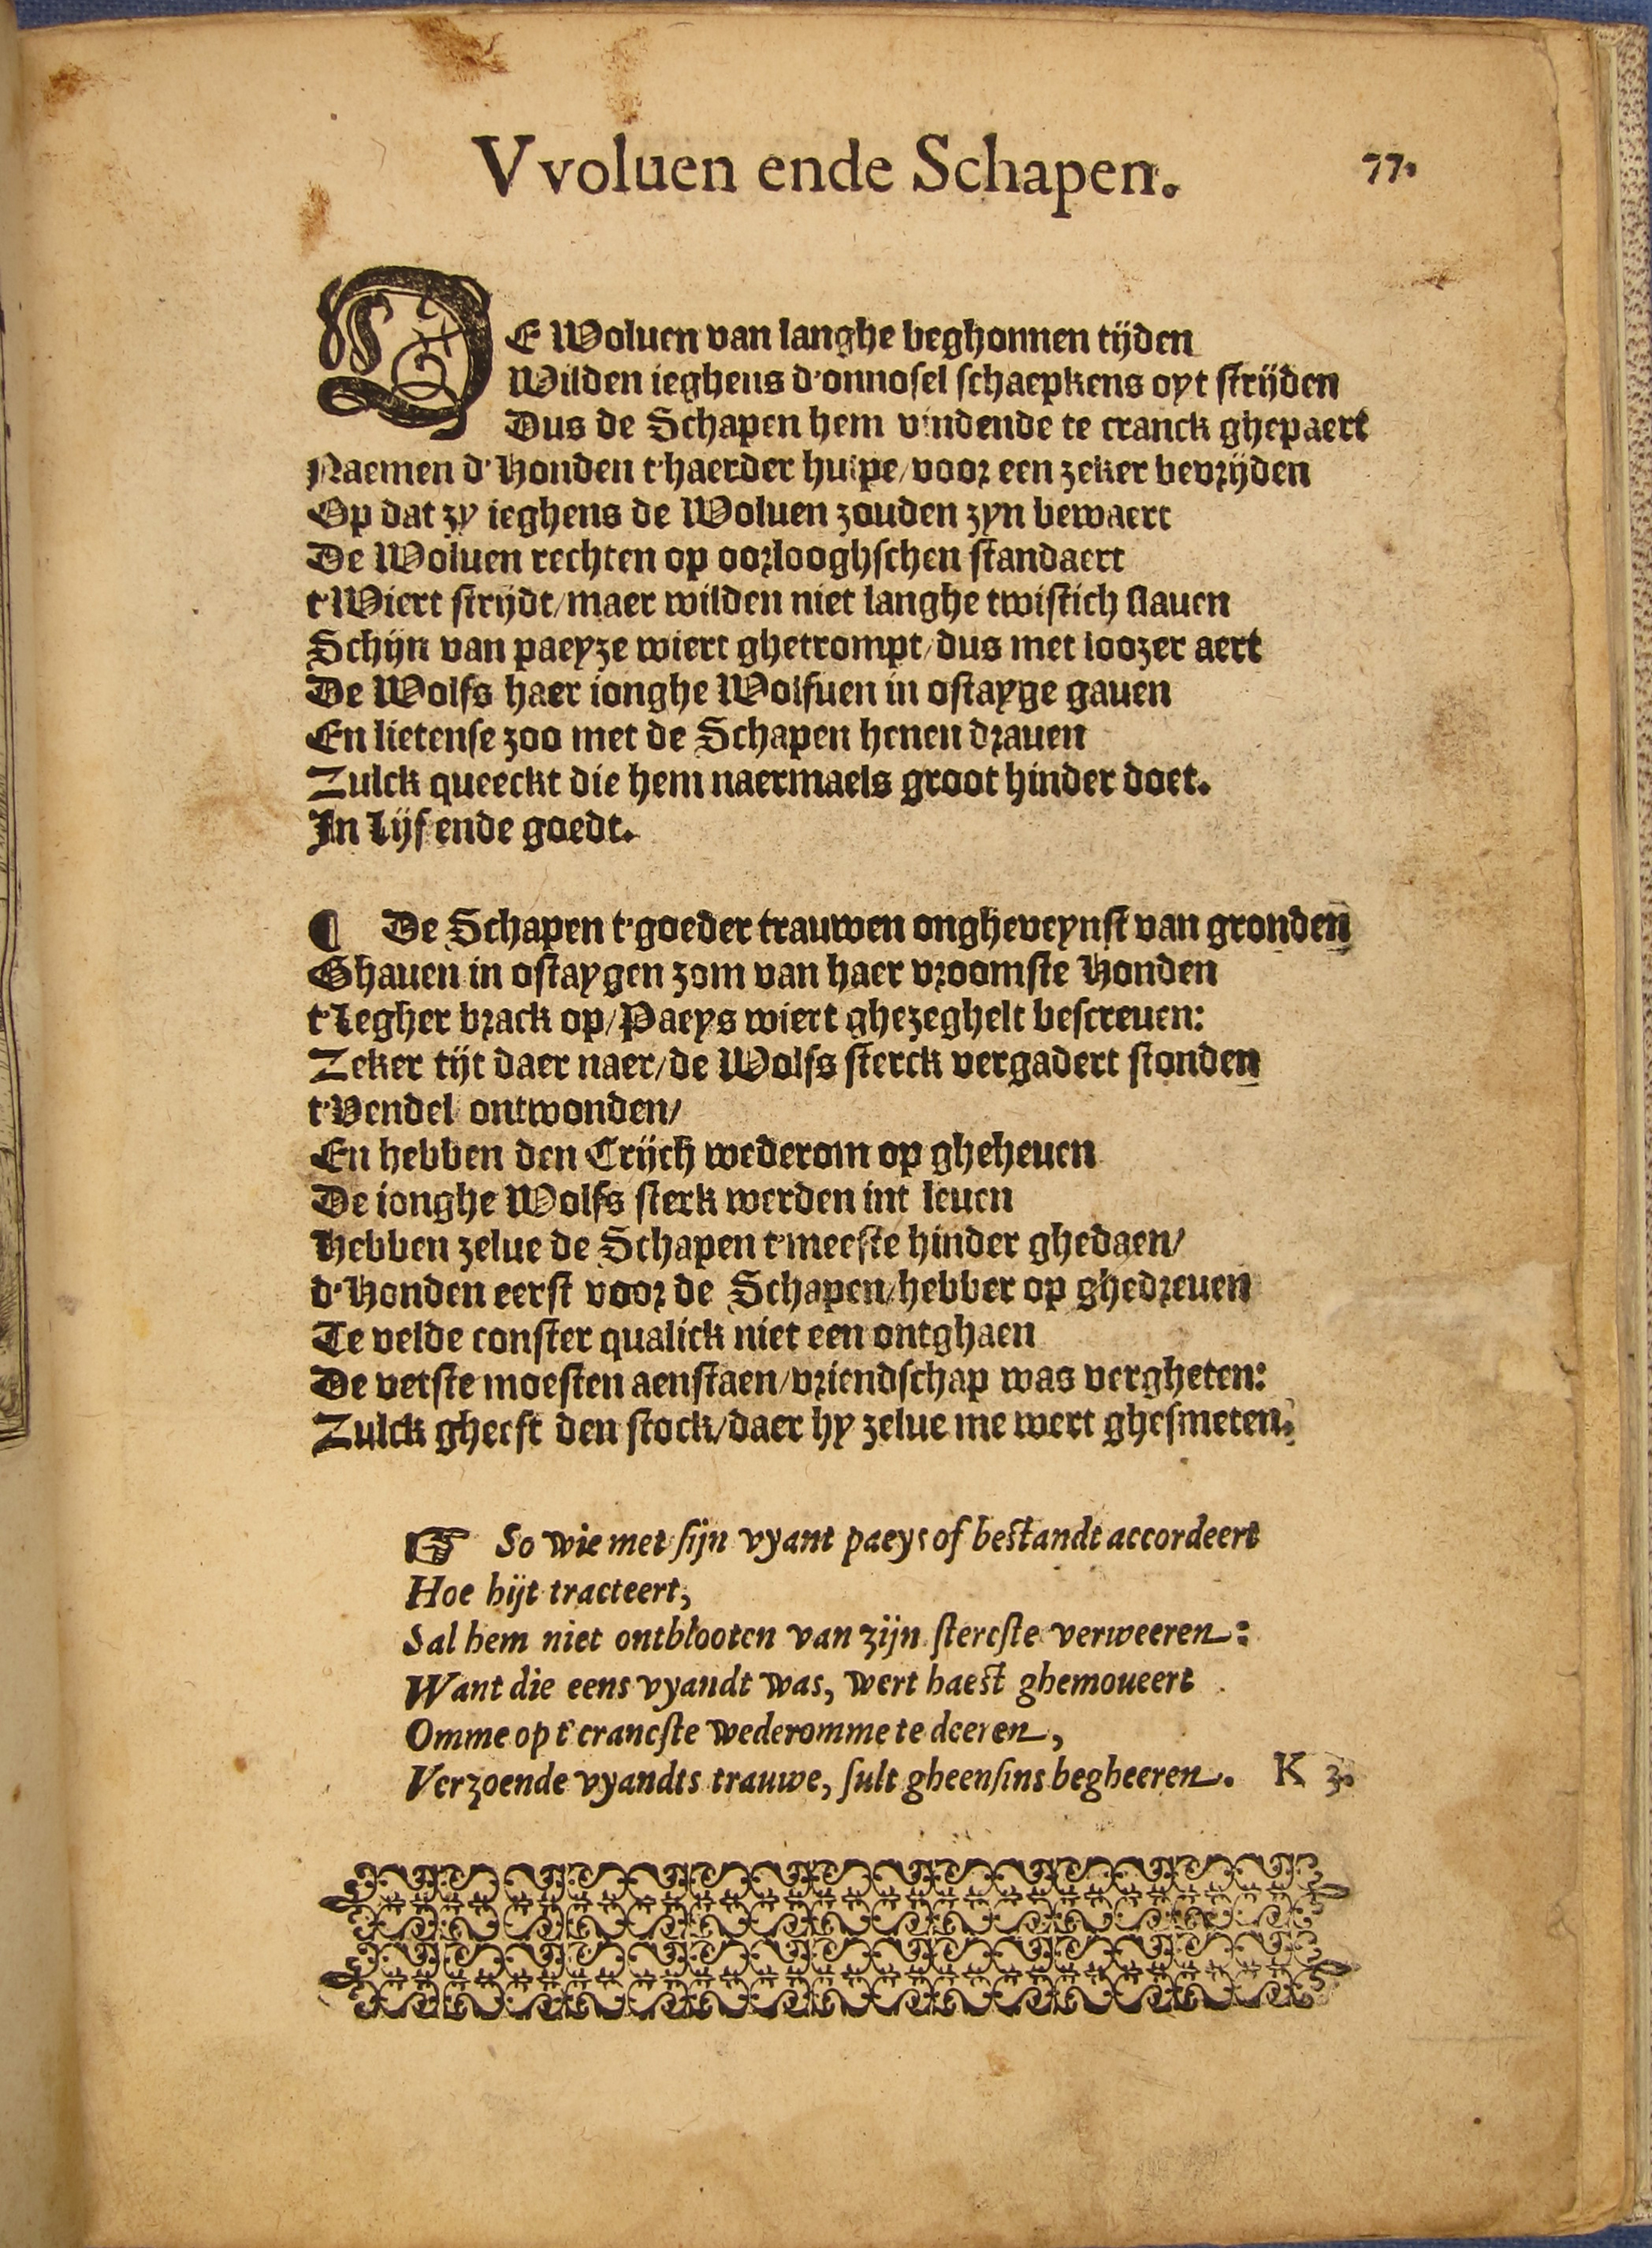 Vvoluen ende Schapen. 77.
DE Woluen van langhe beghonnen tijden
Wilden ieghens d'onnosel schaepkens oyt strijden
Dus de Schapen hem vindende te cranck ghepaert
Naemen d'Honden t'haerder hulpe/voor een zeker bevrijden
Op dat zy ieghens de Woluen zouden zyn bewaert
De Woluen rechten op oorlooghschen standaert
t'Wiert strijdt/maer wilden niet langhe twistich slauen
Schijn van paeyze wiert ghetrompt/dus met loozer aert
De Wolfs haer ionghe Wolfuen in ostayge gauen
En lietense zoo met de Schapen henen drauen
Zulck queeckt die hem naermaels groot hinder doet.
In Lijf ende goedt.
¶ De Schapen t'goeder trauwen ongheveynst van gronden
Ghauen in ostaygen zom van haer vroomste Honden
t'Legher brack op/Paeys wiert ghezeghelt bescreuen:
Zeker tijt daer naer/de Wolfs sterck vergadert stonden
t'Vendel ontwonden/
En hebben den Crijch wederom op gheheuen
De ionghe Wolfs sterk werden int leuen
Hebben zelue de Schapen t'meeste hinder ghedaen/
d'Honden eerst voor de Schapen/hebber op ghedreuen
Te velde conster qualick niet een ontghaen
De vetste moesten aenstaen/vriendschap was vergheten:
Zulck gheeft den stock/daer hy zelue me wert ghesmeten.
☞ So wie met sijn vyant paeys of bestandt accordeert
Hoe hijt tracteert,
Sal hem niet ontblooten van zijn stercste verweeren:
Want die eens vyandt was, wert haest ghemoueert
Omme op t'crancste wederomme te deeren,
Verzoende vyandts trauwe, sult gheensins begheeren. K 3.